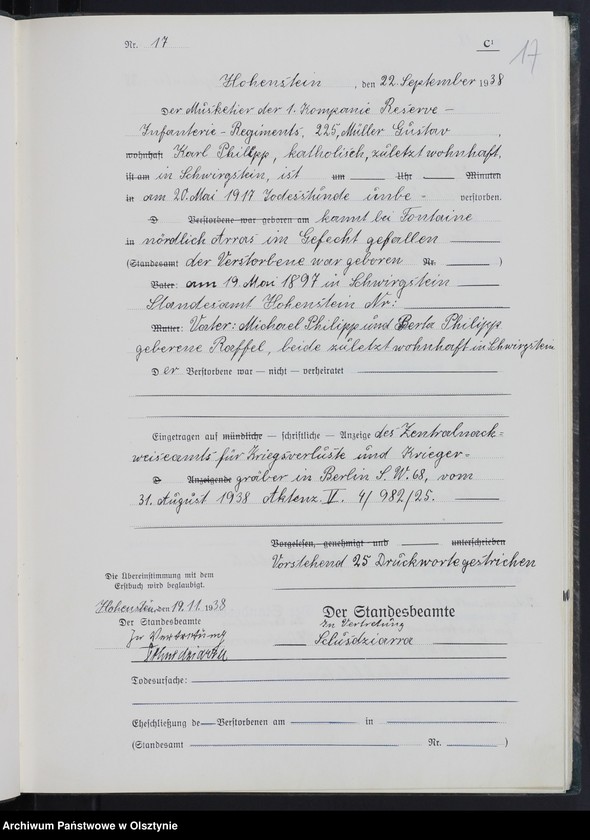 Nr. 17
C¹
17
Hohenstein, den 22. September 1938
Der Musketier der 1. Kompanie Reserve-
Infanterie-Regiments 225, Müller Gustav,
wohnhaft Karl Philipp, katholisch, zuletzt wohnhaft
ist am in Schwirgstein, ist um Uhr Minuten
in am 20. Mai 1917 Todesstunde unbe- verstorben.
D Verstorbene war geboren am kannt bei Fontaine
in nördlich Arras im Gefecht gefallen
(Standesamt der Verstorbene war geboren Nr. )
Vater: am 19. Mai 1897 in Schwirgstein
Standesamt Hohenstein Nr:
Mutter: Vater: Michael Philipp und Berta Philipp
geberene Raffel, beide zuletzt wohnhaft in Schwirgstein
Der Verstorbene war — nicht — verheiratet
Eingetragen auf mündliche — schriftliche — Anzeige des Zentralnach=
weiseamts für Kriegsverluste und Krieger=
D Anzeigende gräber in Berlin S. W. 68, vom
31. August 1938 Aktenz. II. 4/982/25.
Vorgelesen, genehmigt und unterschrieben
Vorstehend 25 Druckworte gestrichen
Die Übereinstimmung mit dem
Erstbuch wird beglaubigt.
Hohenstein, den 19.11. 1938
Der Standesbeamte
In Vertretung
Der Standesbeamte
In Vertretung
Todesursache:
Eheschließung de Verstorbenen am in
(Standesamt Nr. )
Archiwum Państwowe w Olsztynie